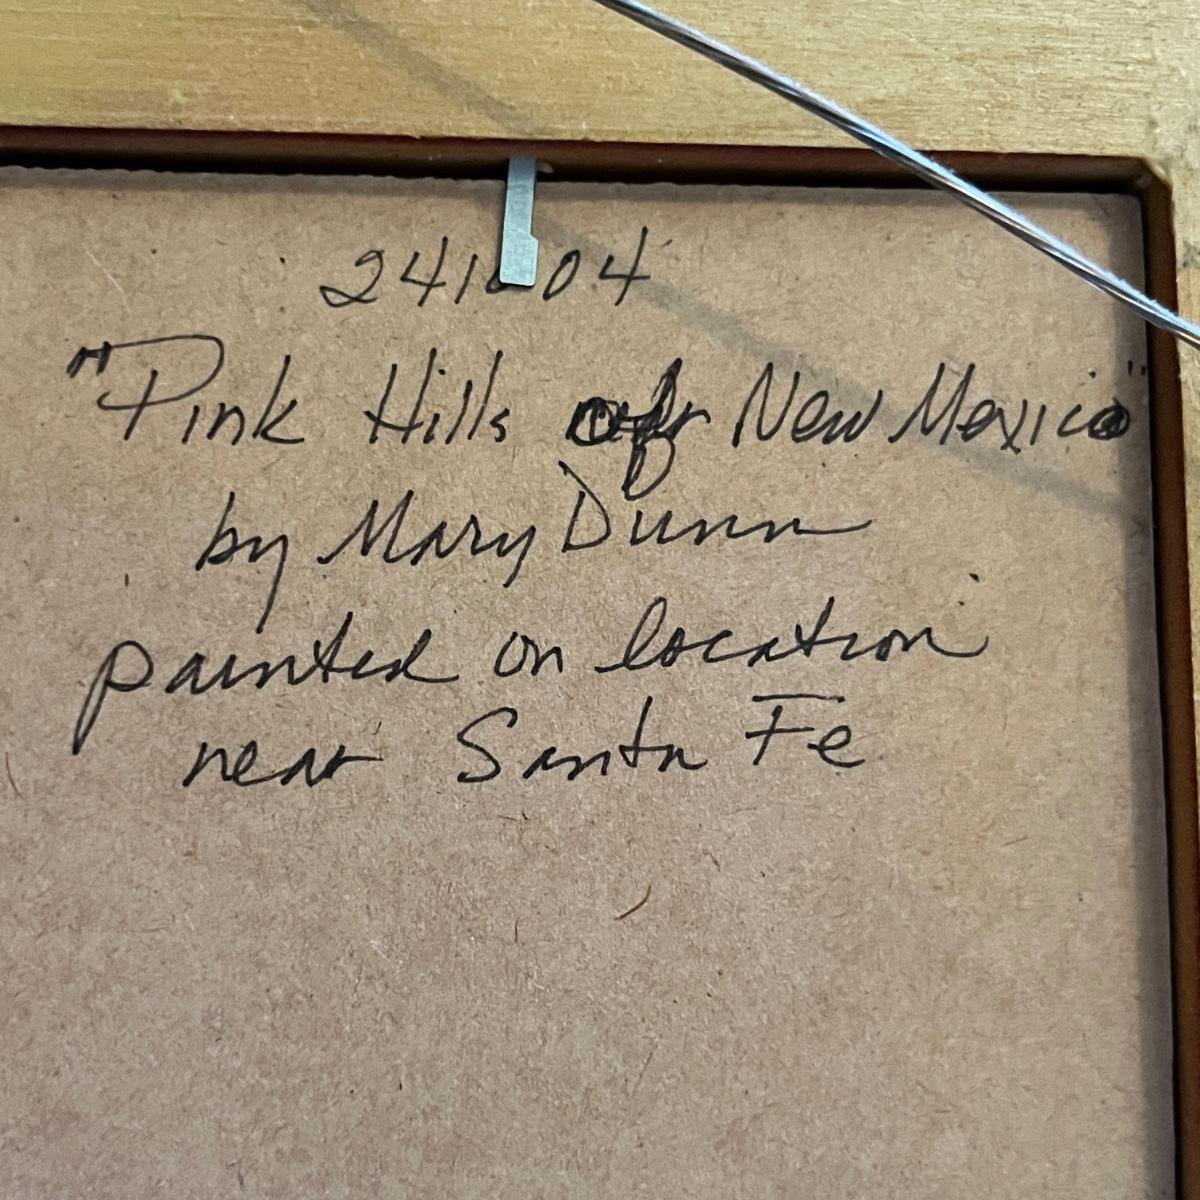 "Pink Hills of New Mexico"
by Mary Dunn
painted on location
near Santa Fe